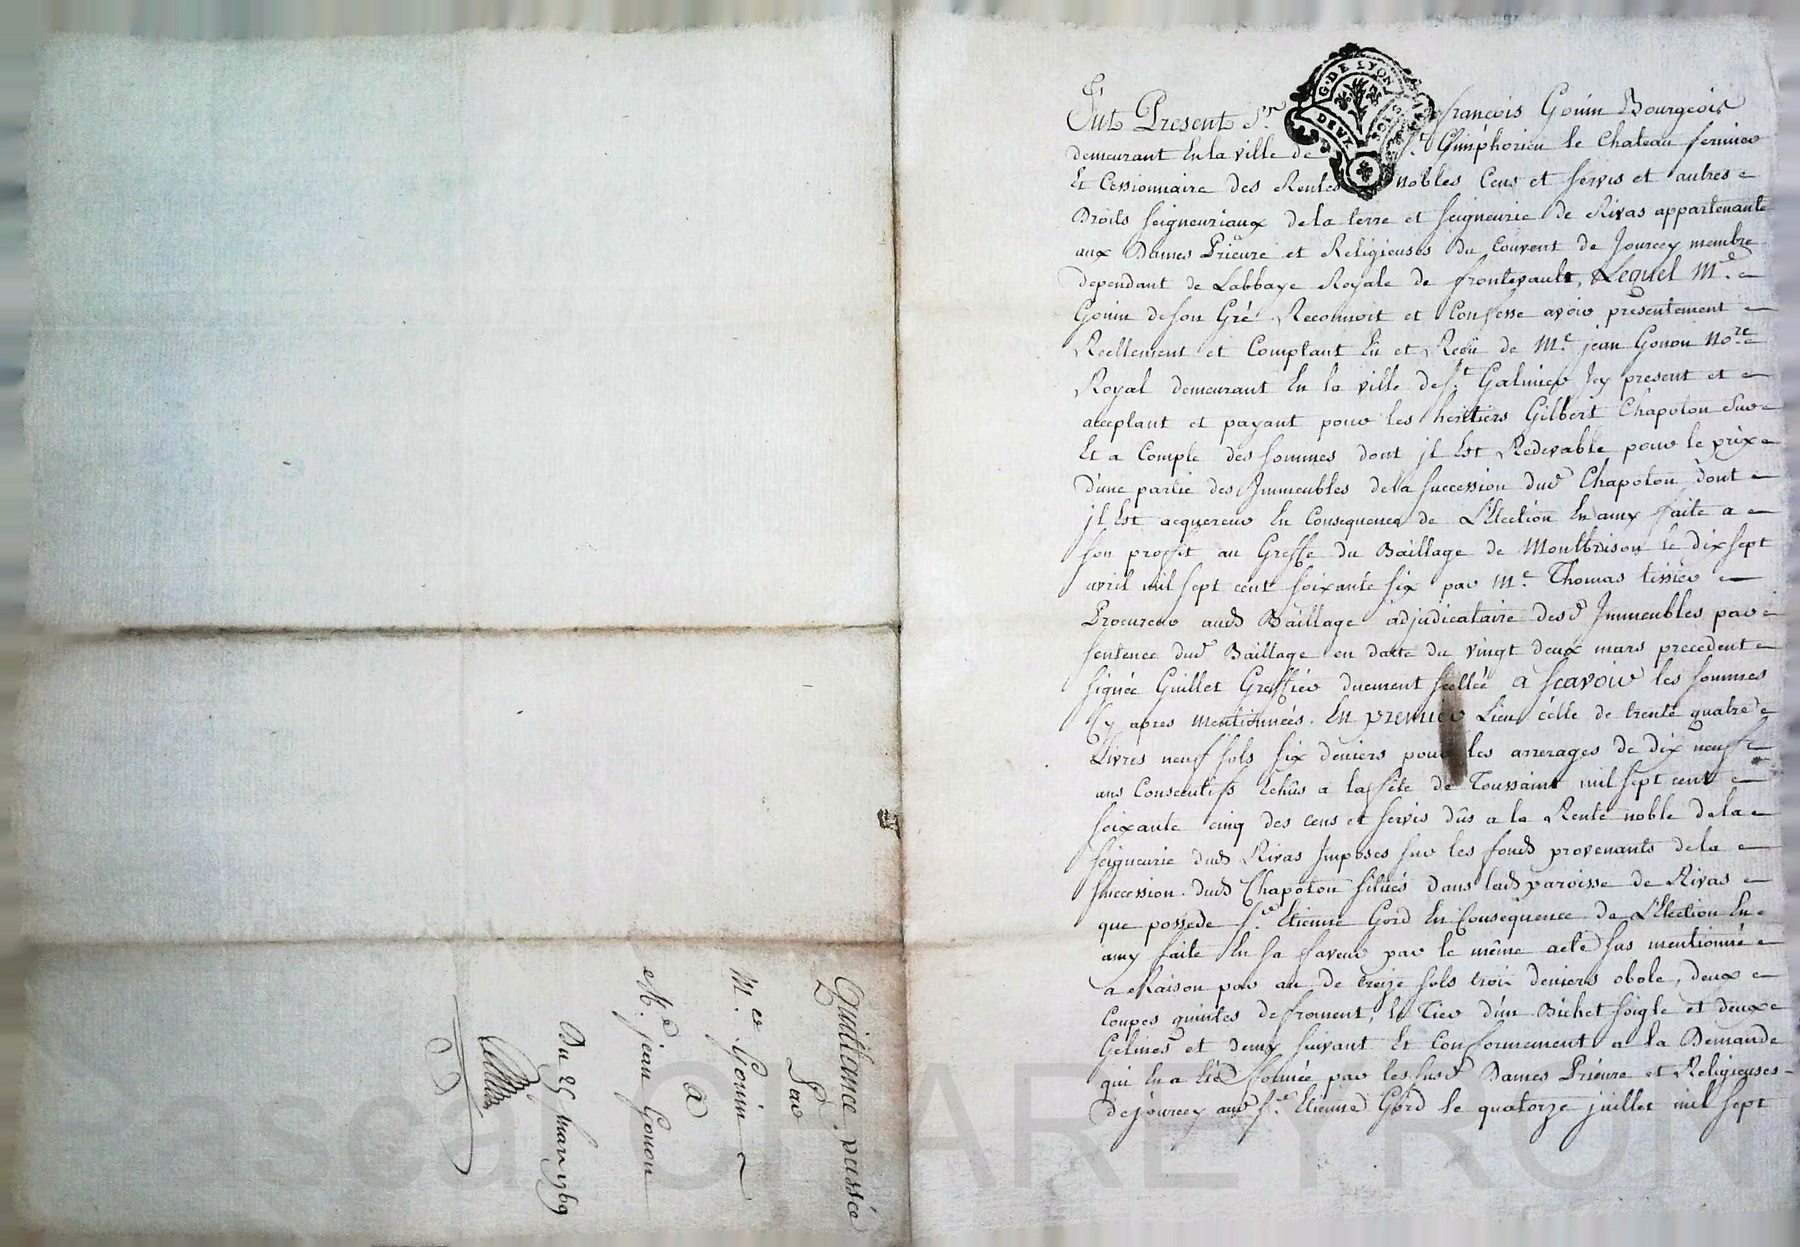 Fut Present Sr françois Gonin Bourgeois
demeurant En la ville de St Simphorien le Chateau fermier
Et Cessionnaire des Rentes nobles Cens et servis et autres
Droits seigneuriaux de la terre et seigneurie de Rivas appartenante
aux Dames Prieure et Religieuses du Couvent de Jourcey membre
dependant de Labbaye Royale de frontevault, Lequel Me
Gonin de son Gré Reconnoit et Confesse avoir presentement
Reellement et Comptant Eu et Reçu de Me jean Gonon Nore
Royal demeurant En la ville de St Galmier Icy present et
acceptant et payant pour les heritiers Gilbert Chapoton Sur
Et a Compte des sommes dont il Est Redevable pour le prix
D'une partie des Immeubles de la succession dud Chapoton dont
il Est acquereur En Consequence de L'Election En amy faite a
son proffit au Greffe du Baillage de Montbrison le dix sept
avril mil sept cent soixante six par Me Thomas tissier
Procureur aud Baillage adjudicataire desd Immeubles par
sentence dud Baillage en datte du vingt deux mars precedent
signée Guillet Greffier duement scellée a scavoir les sommes
Cy apres mentionnées. En premier Lieu celle de trente quatre
Livres neuf sols six deniers pour les arrerages de dix neuf
ans Consecutifs Echûs a la fête de Toussaint mil sept cent
soixante cinq des cens et servis dûs a la Rente noble de la
seigneurie dud Rivas Imposés sur les fonds provenants de la
succession dud Chapoton situés dans lad paroisse de Rivas
que possede sr Etienne Gord En Consequence de L'Election En
amy faite En sa faveur par le même acte sus mentionné
a Raison par an de treize sols trois deniers obole, deux
Coupes quintes de froment, le Tier d'un Bichet soigle et deux
Gelines et demy suivant Et Conformement a la Demande
qui En a Eté formée par lesd Dames Prieure et Religieuses
de jourcey aud sr Etienne Gord le quatorze juillet mil sept
Quittance passée
Par
M.es Gonin
a
Me jean Gonon
Du 25 mars 1769
G. DE LYON
DEUX SOLS
scan CHAREYRON